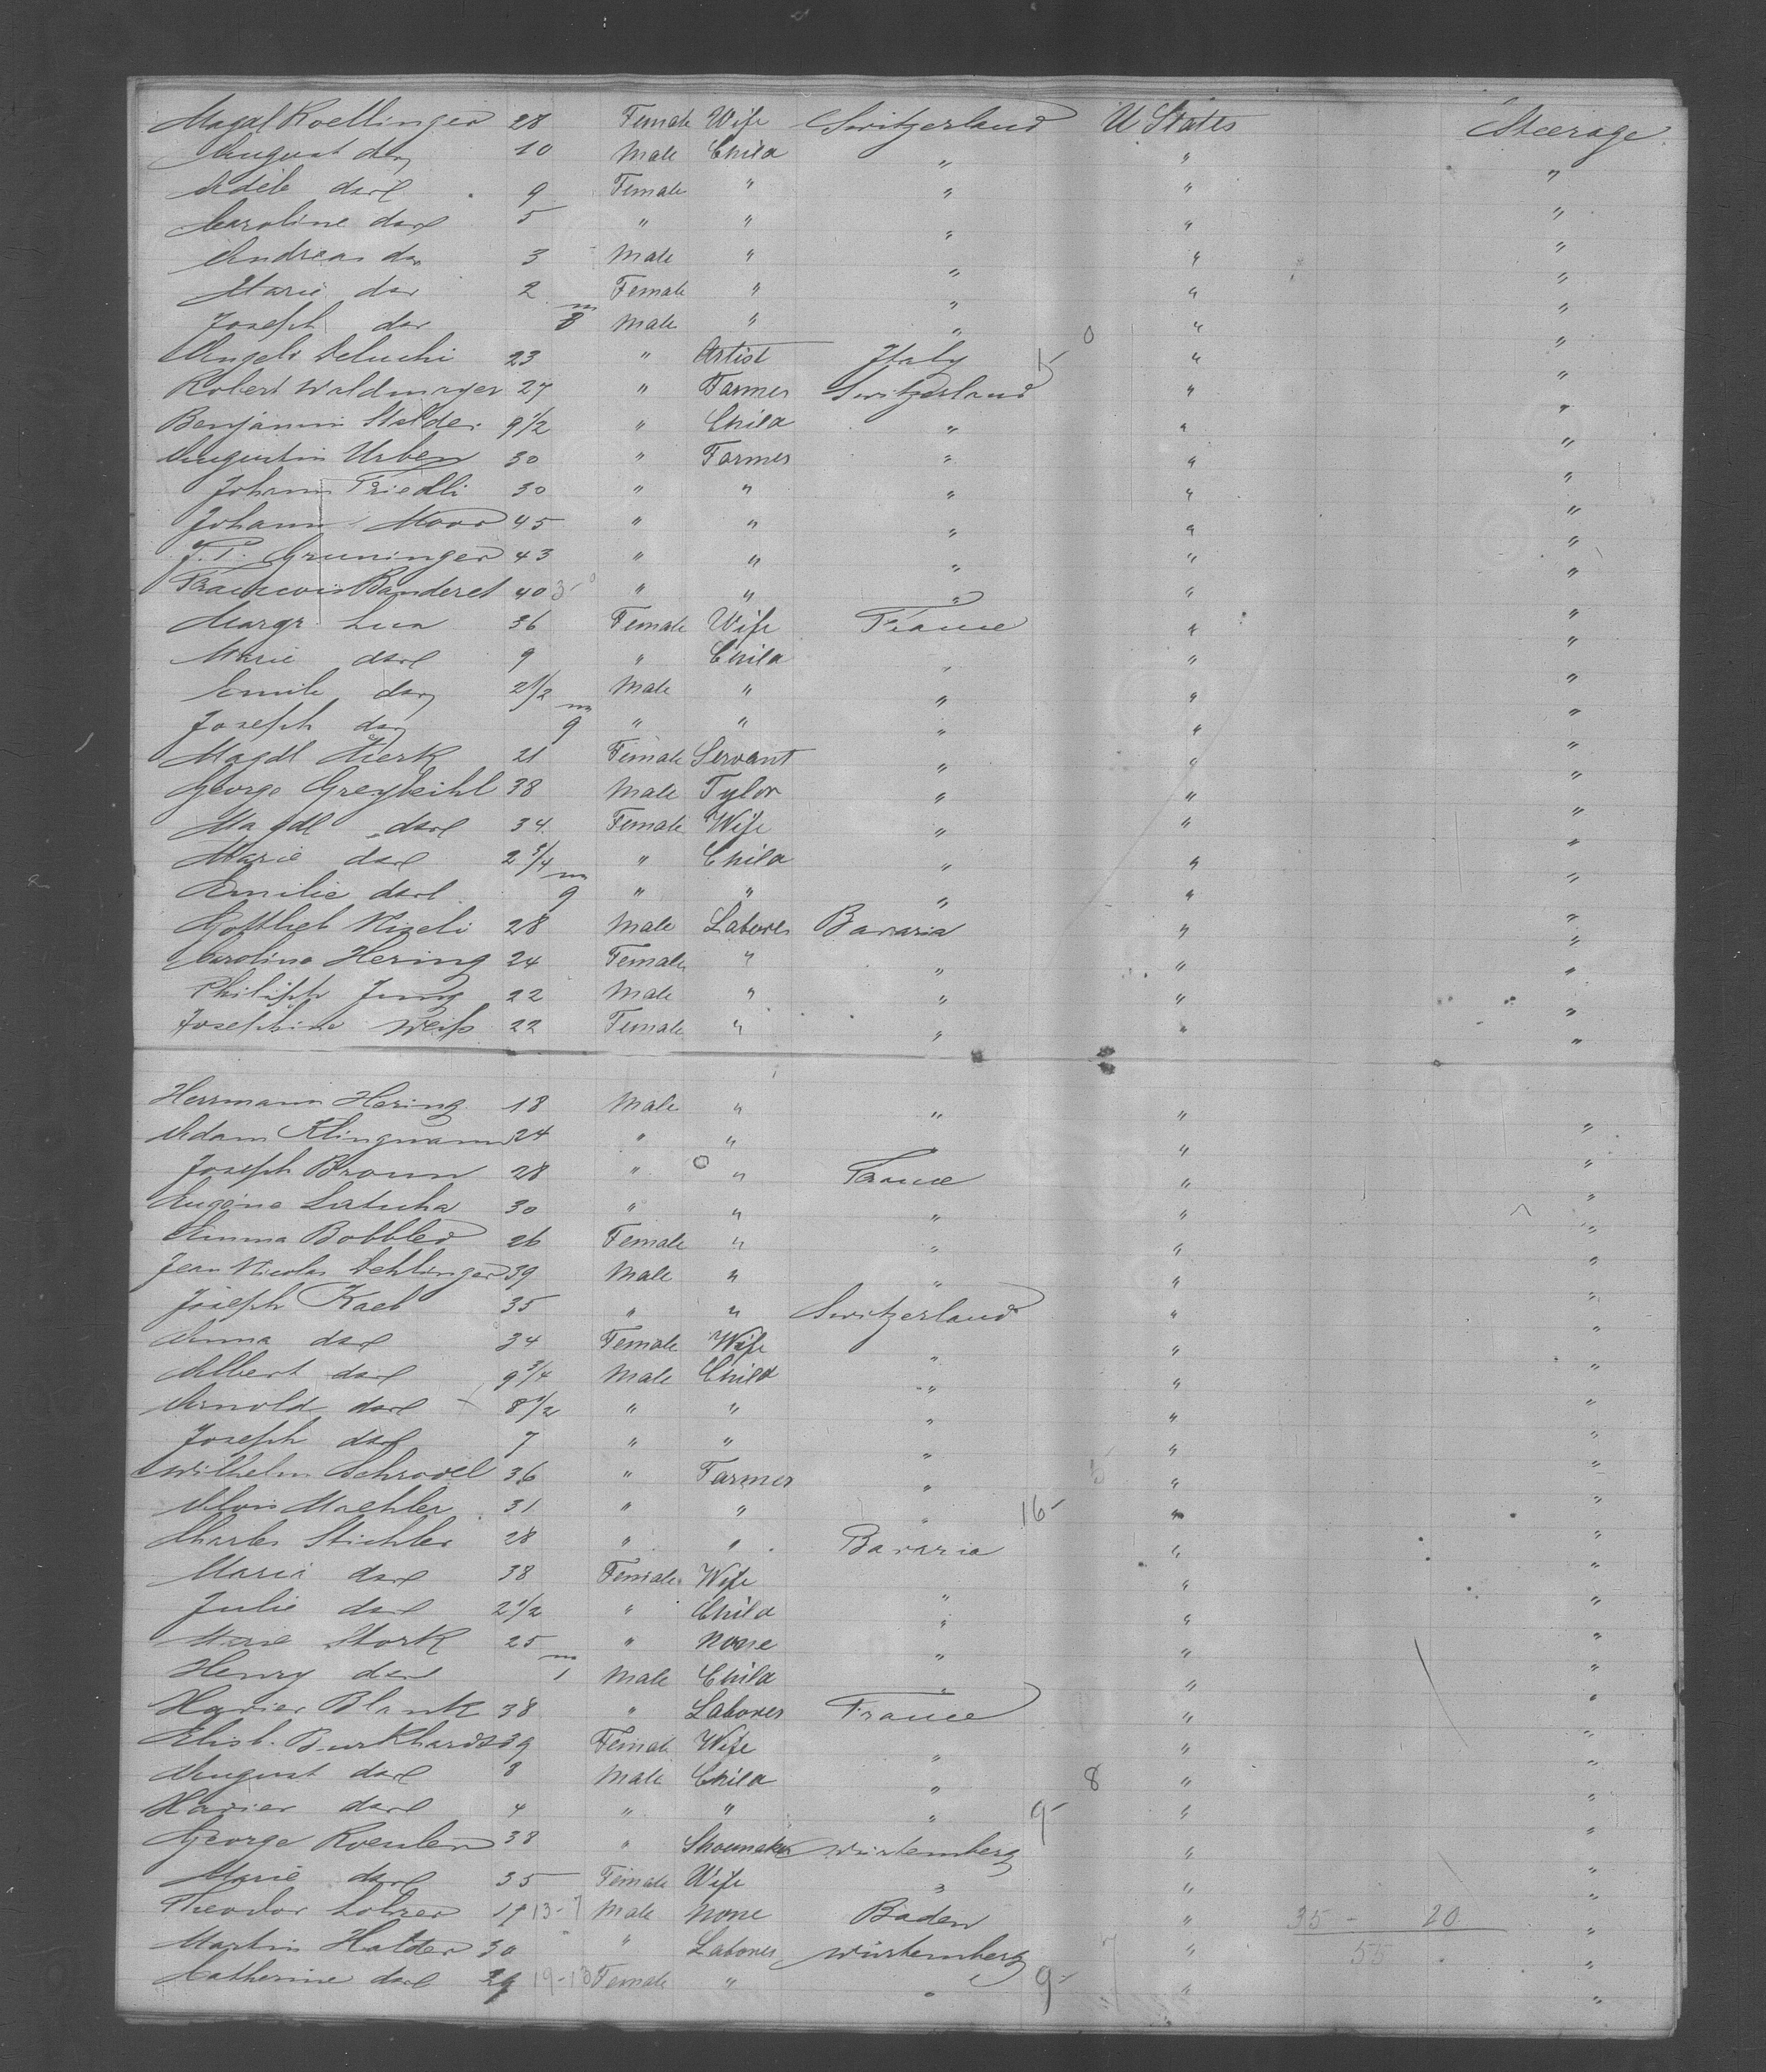 Magd Roellinger 28 Female Wife Switzerland U States Steerage
August do 10 Male Child " " "
Adele do 9 Female " " " "
Caroline do 5 " " " " "
Andreas do 3 Male " " " "
Marie do 2 Female " " " "
Joseph do m 8 Male " " 0 " "
Angelo Deluchi 23 " Artist Italy " "
Robert Waldmayer 27 " Farmer Switzerland " "
Benjamin Stalder 9 1/2 " Child " " "
Augustin Urben 30 " Farmer " " "
Johann Friedli 30 " " " " "
Johann Moor 45 " " " " "
J. T. Gruninger 43 " " " " "
Francois Banderet 40 " " " " "
Margr Lua 36 Female Wife France " "
Marie do 9 " Child " " "
Emile do 2 1/2 Male " " " "
Joseph do m 9 " " " " "
Magdl 21 Female Servant " " "
George Greybeihl 38 Male Tylor " " "
Magdl do 34 Female Wife " " "
Marie do 2 3/4 " Child " " "
Emilie do m 9 " " " " "
Gottlieb Niseli 28 Male Laborer Bavaria " "
Carolina Hering 24 Female " " " "
Philipp Jung 22 Male " " " "
Josephine Weiß 22 Female " " " "
Herrmann Hering 18 Male " " " "
Adam Klingmann 24 " " " " "
Joseph Broun 28 " " France " "
Eugena 30 " " " " "
Emma Bobbler 26 Female " " " "
Jean Nicolas Dehlinger 39 Male " " " "
Joseph Kaeb 35 " " Switzerland " "
Anna do 34 Female Wife " " "
Albert do 9 3/4 Male Child " " "
Arnold do 8 1/2 " " " " "
Joseph do 7 " " " " "
Wilhelm Schrodel 36 " Farmer " " "
Alois Maehler 31 " " " 16- " "
Charles Stichler 28 " " Bavaria " "
Maria do 38 Female Wife " " "
Julie do 2 1/2 " Child " " "
Marie Stork 25 " None " " "
Henry do m 1 Male Child " " "
Xavier Blank 38 " Laborer France " "
Elisb. Burkhardt 39 Female Wife " " "
August do 8 Male Child " 8 " "
Xavier do 4 " " " 9- " "
George Roeulen 38 " Shoemaker Wurtemberg " "
Marie do 35 Female Wife " " "
Theodor Lohrer 17 13-7 Male None Baden " 35 - 20 "
Martin Halder 30 " Laborer Wurtemberg 7 " 55 "
Catherine do 29 19-13 Female " " 9- " "